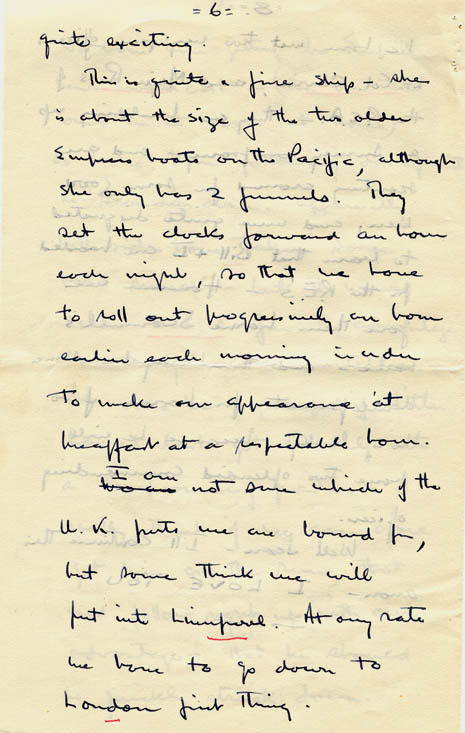 = 6 =
quite exciting.
This is quite a fine ship - she
is about the size of the two older
Empress boats on the Pacific, although
she only has 2 funnels. They
set the clocks forward an hour
each night, so that we have
to roll out progressively an hour
earlier each morning in order
to make our appearance at
breakfast at a respectable hour.
I am
not sure which of the
U.K. ports we are bound for,
but some think we will
put into Liverpool. At any rate
we have to go down to
London first thing.